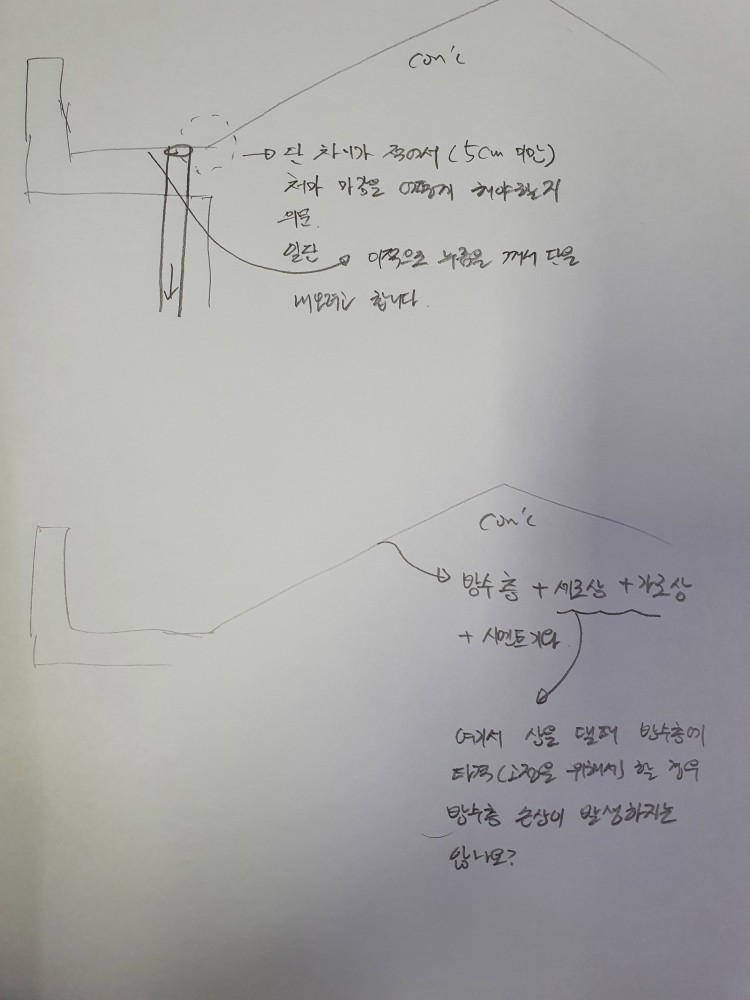 con'c
단 차이가 적어서 (5cm 미만)
처마 마감을 어떻게 해야할지
의문.
일단 이쪽으로 누름을 껴서 단을
내보려고 합니다.
con'c
방수층 + 세로상 + 가로상
+ 시멘트기와
여기서 상을 댈때 방수층에
타격(고정을 위해서) 할 경우
방수층 손상이 발생하지는
않나요?